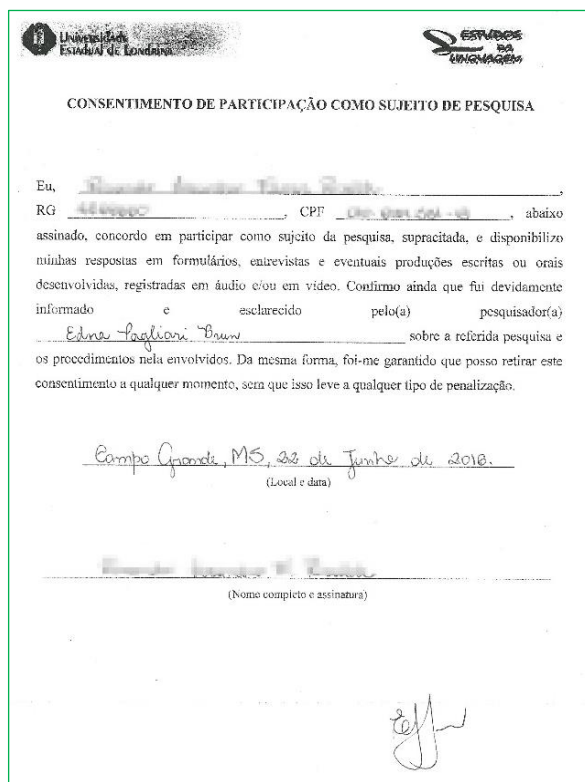 UNIVERSIDADE
ESTADUAL DE LONDRINA
ESTUDOS
DA
LINGUAGEM
CONSENTIMENTO DE PARTICIPAÇÃO COMO SUJEITO DE PESQUISA
Eu, ,
RG , CPF , abaixo
assinado, concordo em participar como sujeito da pesquisa, supracitada, e disponibilizo
minhas respostas em formulários, entrevistas e eventuais produções escritas ou orais
desenvolvidas, registradas em áudio e/ou em vídeo. Confirmo ainda que fui devidamente
informado e esclarecido pelo(a) pesquisador(a)
Edna Pagliari Brun sobre a referida pesquisa e
os procedimentos nela envolvidos. Da mesma forma, foi-me garantido que posso retirar este
consentimento a qualquer momento, sem que isso leve a qualquer tipo de penalização.
Campo Grande, MS, 22 de Junho de 2016.
(Local e data)
(Nome completo e assinatura)